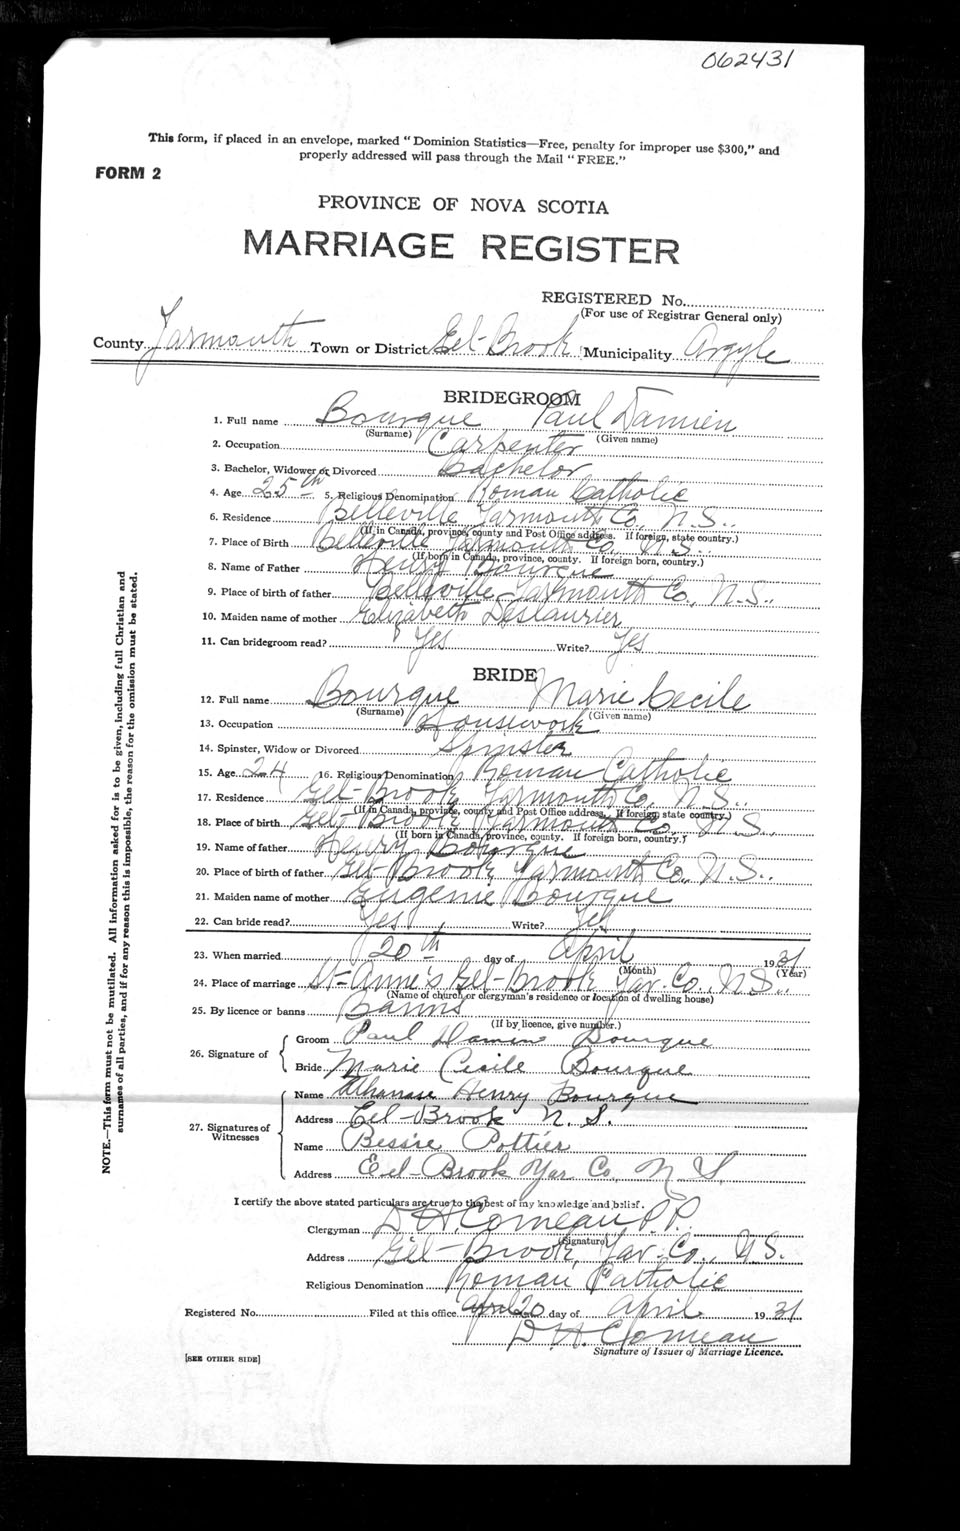 062431
This form, if placed in an envelope, marked "Dominion Statistics—Free, penalty for improper use $300," and
properly addressed will pass through the Mail "FREE."
FORM 2
PROVINCE OF NOVA SCOTIA
MARRIAGE REGISTER
REGISTERED No.
(For use of Registrar General only)
County Yarmouth Town or District Eel-Brook Municipality Argyle
BRIDEGROOM
1. Full name Bourque Paul Damien
(Surname) (Given name)
2. Occupation Carpenter
3. Bachelor, Widower or Divorced Bachelor
4. Age 25th 5. Religious Denomination Roman Catholic
6. Residence Belleville Yarmouth Co., N.S.
(If in Canada, province, county and Post Office address. If foreign, state country.)
7. Place of Birth Belleville Yarmouth Co., N.S.
(If born in Canada, province, county. If foreign born, country.)
8. Name of Father Henry Bourque
9. Place of birth of father Belleville Yarmouth Co., N.S.
10. Maiden name of mother Elizabeth Deslaurier
11. Can bridegroom read? Yes Write? Yes
BRIDE
12. Full name Bourque Marie Cecile
(Surname) (Given name)
13. Occupation Housework
14. Spinster, Widow or Divorced Spinster
15. Age 24 16. Religious Denomination Roman Catholic
17. Residence Eel-Brook Yarmouth Co., N.S.
(If in Canada, province, county and Post Office address. If foreign state country.)
18. Place of birth Eel-Brook Yarmouth Co., N.S.
(If born in Canada, province, county. If foreign born, country.)
19. Name of father Henry Bourque
20. Place of birth of father Eel-Brook Yarmouth Co., N.S.
21. Maiden name of mother Eugenie Bourque
22. Can bride read? Yes Write? Yes
23. When married 20th day of April 1931
(Month) (Year)
24. Place of marriage St-Anne's Eel-Brook Yar. Co., N.S.
(Name of church or clergyman's residence or location of dwelling house)
25. By licence or banns Banns
(If by licence, give number.)
26. Signature of
Groom Paul Damien Bourque
Bride Marie Cecile Bourque
27. Signatures of Witnesses
Name Athanase Henry Bourque
Address Eel-Brook N.S.
Name Bessie Pottier
Address Eel-Brook Yar Co, N S.
I certify the above stated particulars are true to the best of my knowledge and belief.
Clergyman D H. Comeau P.P.
(Signature)
Address Eel-Brook, Yar. Co., N.S.
Religious Denomination Roman Catholic
Registered No. Filed at this office April 20 day of April 1931
D H. Comeau
Signature of Issuer of Marriage Licence.
[SEE OTHER SIDE]
NOTE.—This form must not be mutilated. All information asked for is to be given, including full Christian and
surnames of all parties, and if for any reason this is impossible, the reason for the omission must be stated.